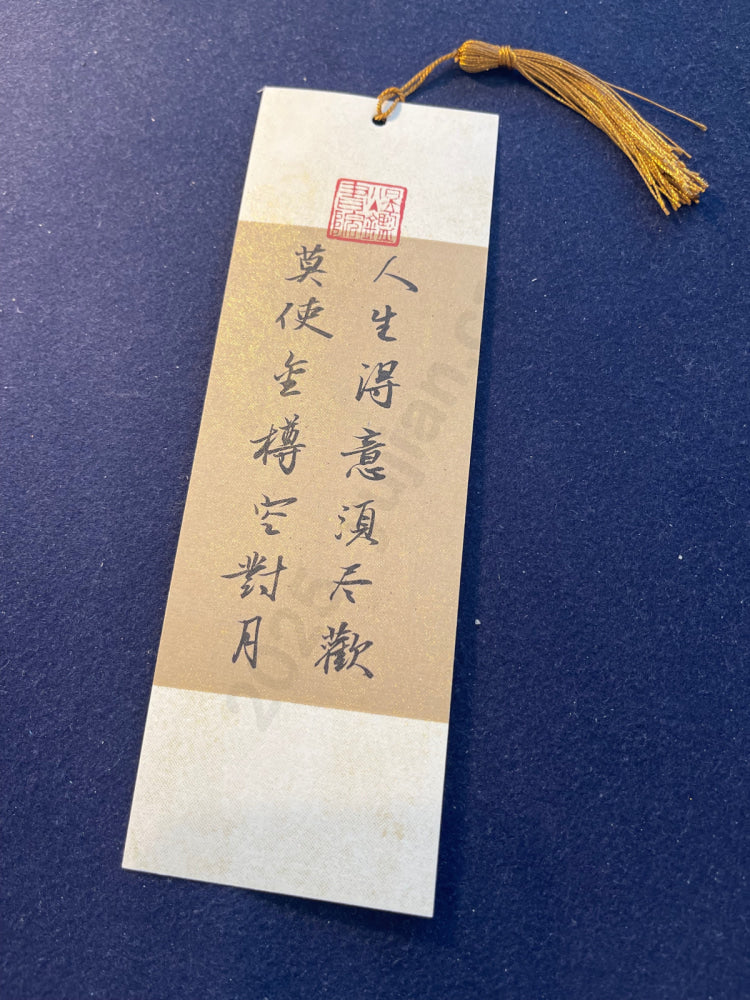 人生得意須尽歡
莫使金樽空對月